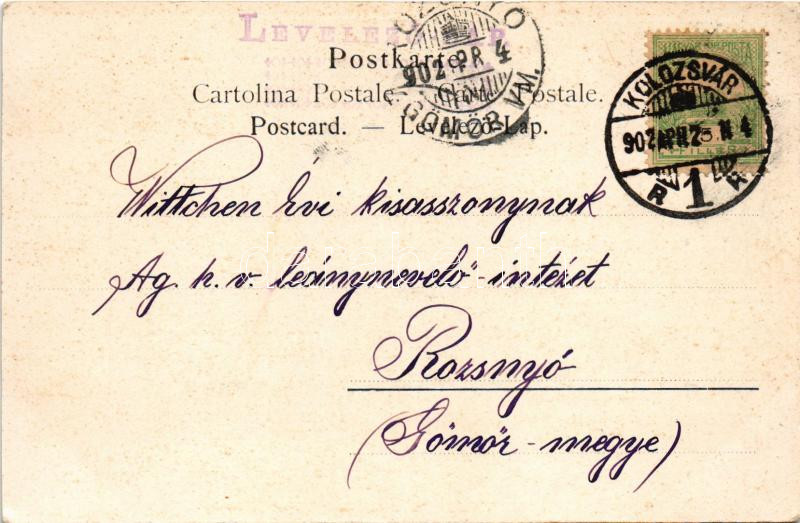 LEVELEZ
Postkarte.
Cartolina Postale. Postale.
Postcard. — Levelező-Lap.
ROZSNYÓ
902 APR 4
GÖMÖR VM.
KOLOZSVÁR
902 APR 2 N 4
1
Wittchen Évi kisasszonynak
Ág. h. v. leánynevelő-intézet
Rozsnyó
(Gömör-megye)